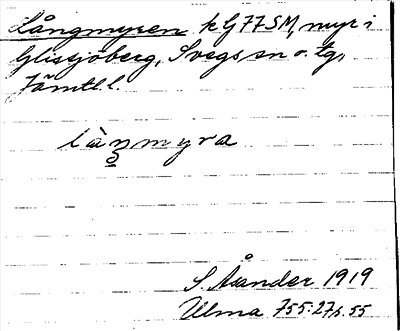 Långmyren k G77SM, myr i
Glissjöberg, Svegs sn o. tg,
Jämtl l.
làŋmyra
S. Åsander 1919
Ulma 755:27 s. 55